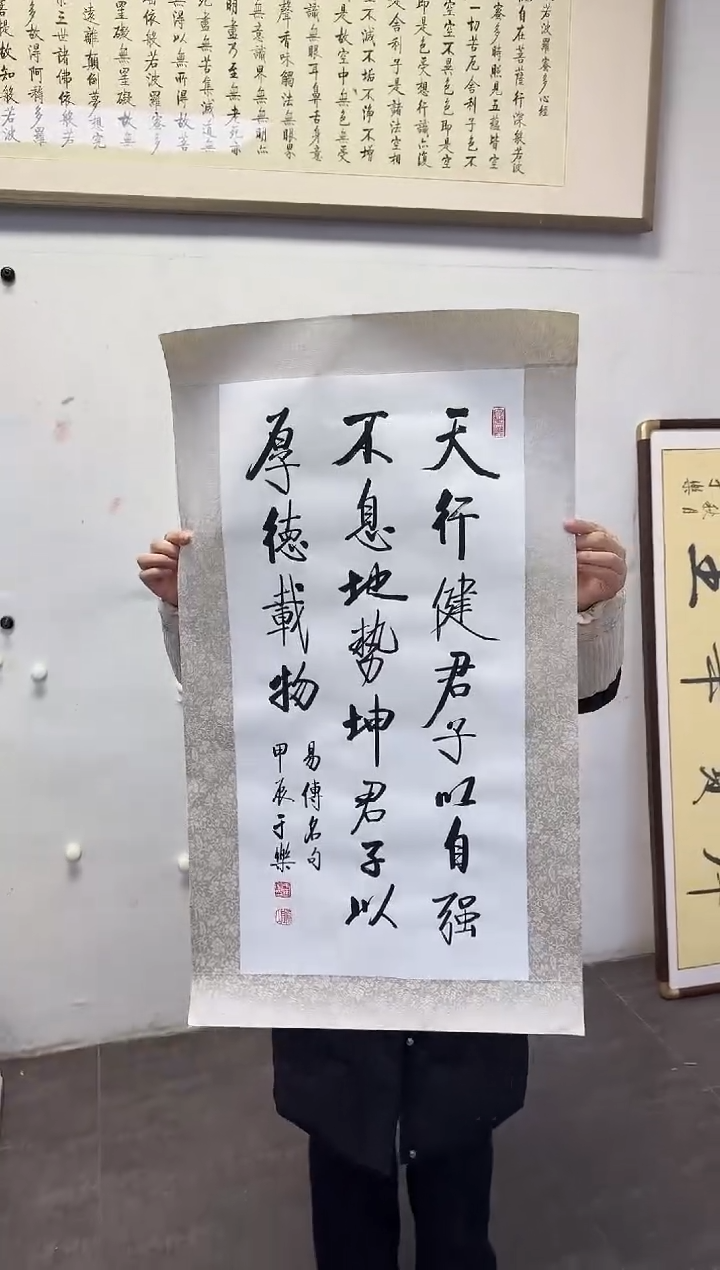 若波羅蜜多心經
自在菩薩行深般若波
蜜多時照見五蘊皆空
一切苦厄舍利子色不
空空不異色色即是空
即是色受想行識亦復
是舍利子是諸法空相
不滅不垢不淨不增
是故空中無色無受
識無眼耳鼻舌身意
聲香味觸法無眼界
無意識界無無明亦
明盡乃至無老死亦
盡無苦集滅道無
無得以無所得故菩
依般若波羅蜜多
罣礙罣礙故無
遠離顛倒夢想究
三世諸佛依般若
多故得阿耨多羅
菩提故知般若波
天行健君子以自强
不息地勢坤君子以
厚德載物
易傳名句
甲辰于樂